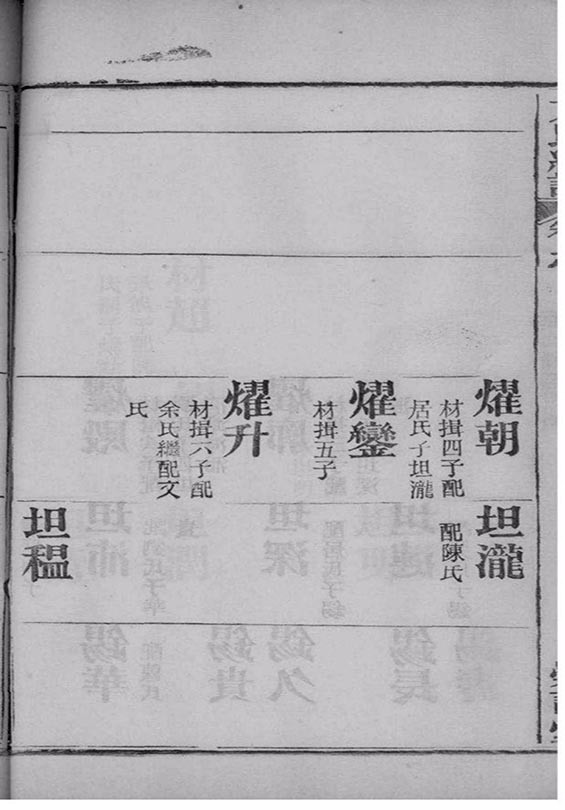 燿朝
材揖四子配
居氏子坦瀧
坦瀧
配陳氏
燿鑾
材揖五子
燿升
材揖六子配
余氏繼配文
氏
坦稳